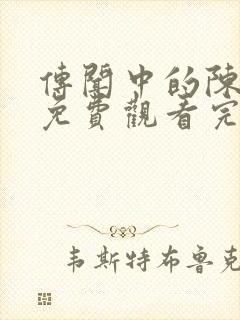 傳聞中的陳
免費觀看完
韦斯特布鲁克